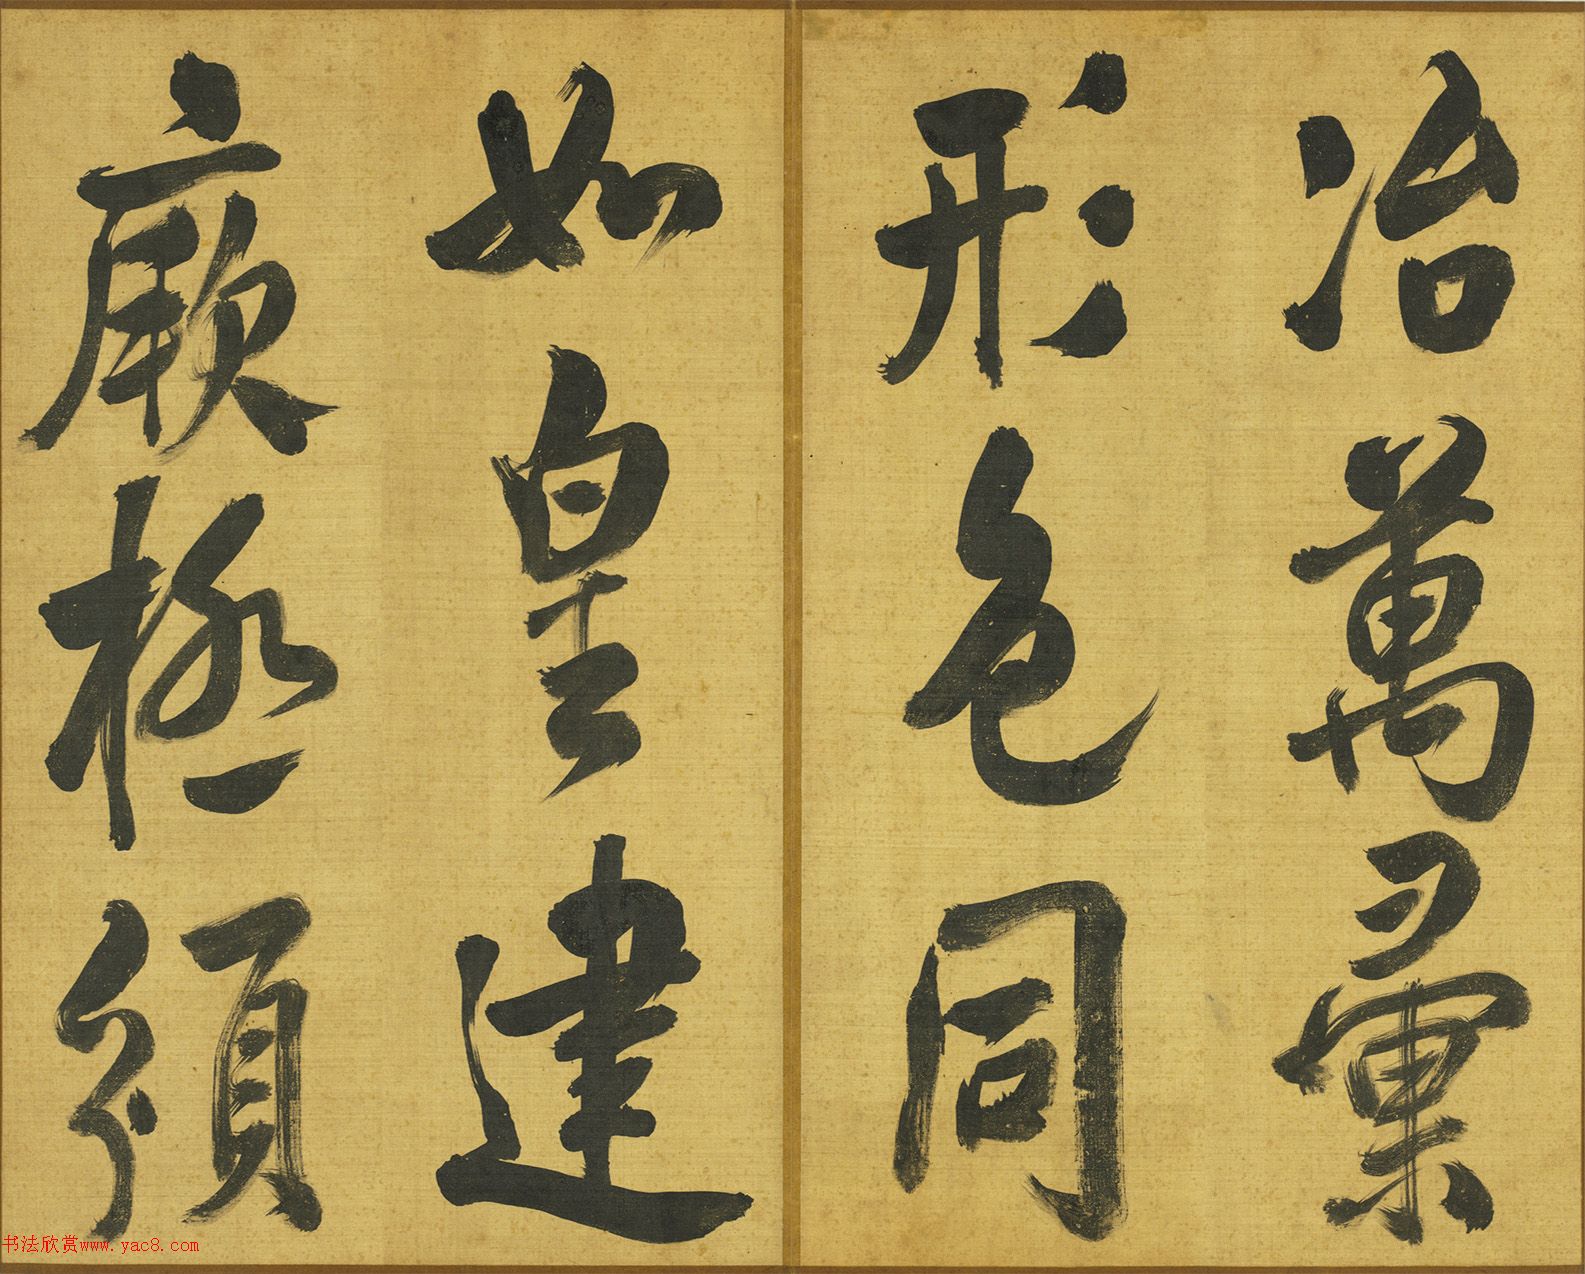 冶萬彙
形色同
如皇建
厥極須
书法欣赏www.yac8.com